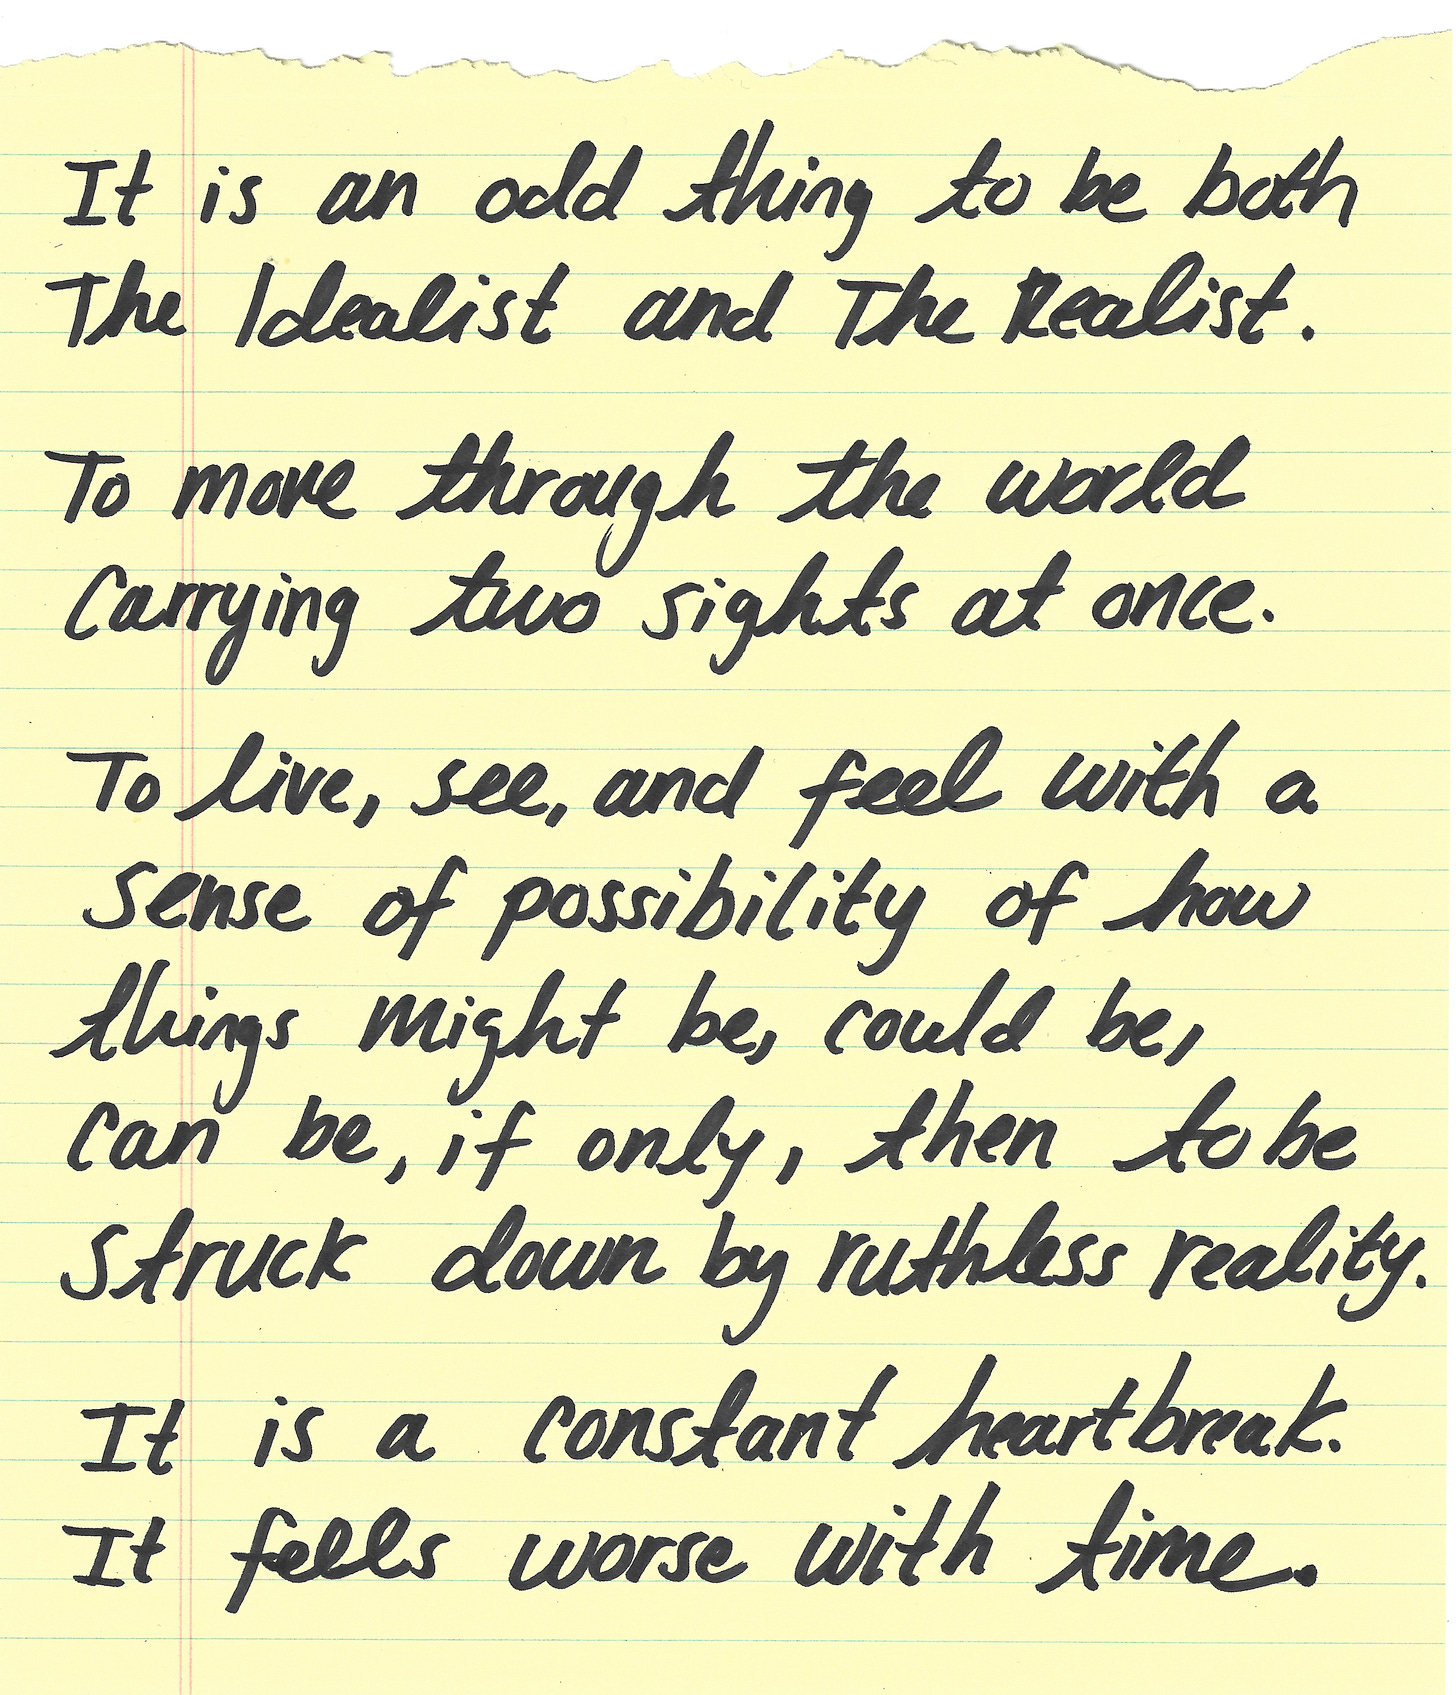 It is an odd thing to be both
The Idealist and The Realist.
To move through the world
Carrying two sights at once.
To live, see, and feel with a
sense of possibility of how
things might be, could be,
can be, if only, then to be
struck down by ruthless reality.
It is a constant heartbreak.
It fells worse with time.